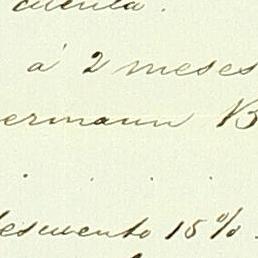 cuenta.
á 2 meses
ermann B
. . . .
descuento 15% .